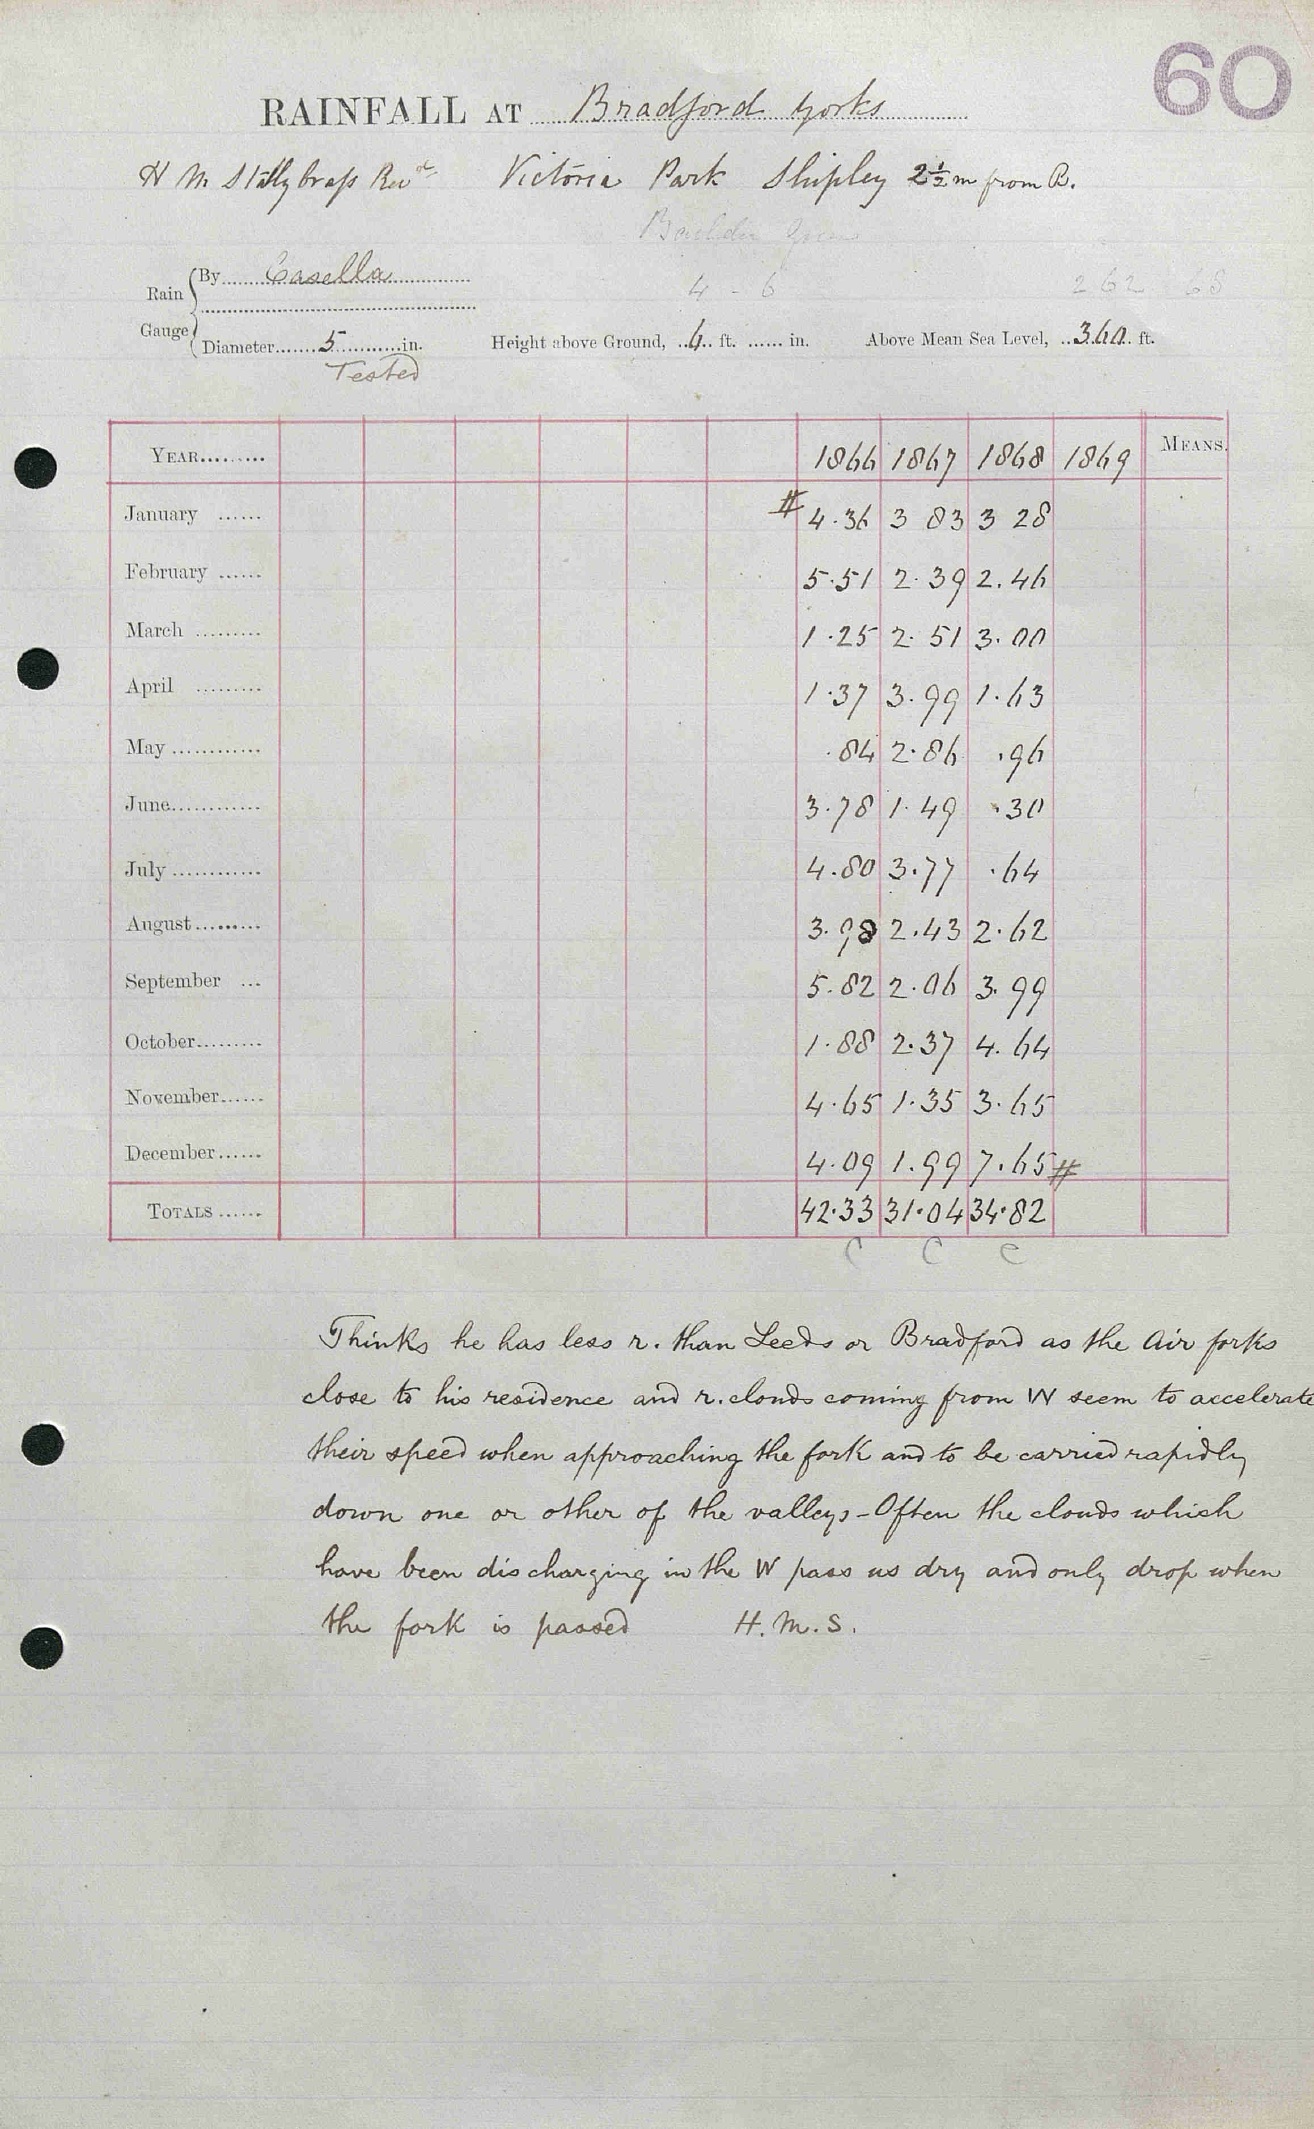 60
RAINFALL AT Bradford Yorks
H M Stallybrass Revd Victoria Park Shipley 2½ m from B.
4 - 6 262 68
Rain Gauge By Casella
Diameter 5 in. Height above Ground, 6 ft. in. Above Mean Sea Level, 360 ft.
Tested
YEAR 1866 1867 1868 1869 MEANS.
January # 4.36 3 83 3 28
February 5.51 2.39 2.46
March 1.25 2.51 3.00
April 1.37 3.99 1.63
May .84 2.86 .96
June 3.78 1.49 .30
July 4.80 3.77 .64
August 3.98 2.43 2.62
September 5.82 2.06 3.99
October 1.88 2.37 4.64
November 4.65 1.35 3.65
December 4.09 1.99 7.65 #
TOTALS 42.33 31.04 34.82
C C C
Thinks he has less r. than Leeds or Bradford as the Air forks
close to his residence and r. clouds coming from W seem to accelerate
their speed when approaching the fork and to be carried rapidly
down one or other of the valleys - Often the clouds which
have been discharging in the W pass us dry and only drop when
the fork is passed H.M.S.